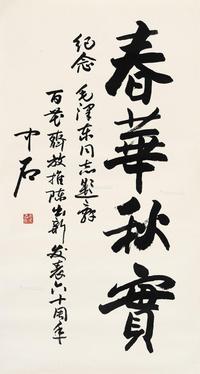 春華秋實
纪念 毛泽东同志题辞
百花齊放推陈出新 发表六十周年
中石